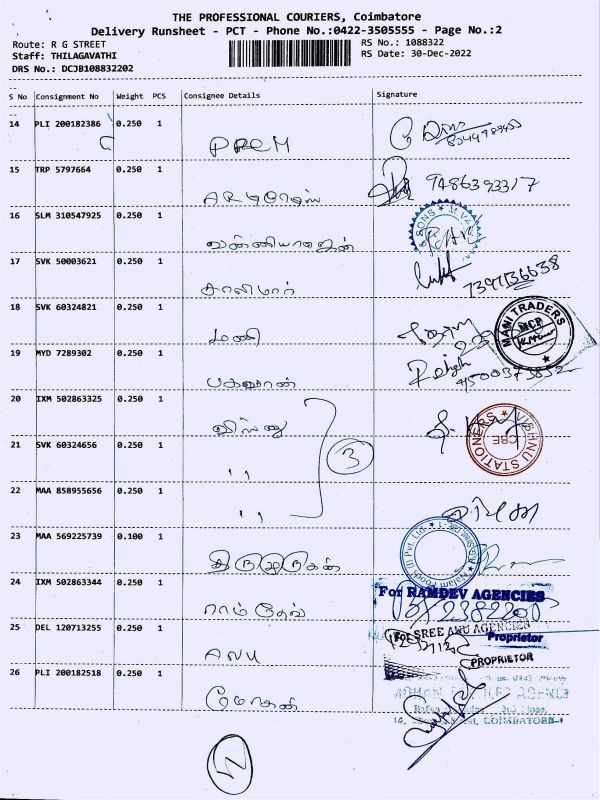 THE PROFESSIONAL COURIERS, Coimbatore
Delivery Runsheet - PCT - Phone No.:0422-3505555 - Page No.:2
Route: R G STREET
RS No.: 1088322
Staff: THILAGAVATHI
RS Date: 30-Dec-2022
DRS No.: DCJB108832202
S No Consignment No Weight PCS Consignee Details Signature
14 PLI 200182386 0.250 1
PREM
15 TRP 5797664 0.250 1
9486393317
16 SLM 310547925 0.250 1
17 SVK 50003621 0.250 1
சாலிமார் 7397136638
18 SVK 60324821 0.250 1
மணி
MANI TRADERS
19 MYD 7289302 0.250 1
பகவான்
20 IXM 502863325 0.250 1
விஷ்ணு
VISHNU STATIONERS
CBE
21 SVK 60324656 0.250 1
,, 3
22 MAA 858955656 0.250 1
,,
23 MAA 569225739 0.100 1
திருமுருகன்
24 IXM 502863344 0.250 1
For RAMDEV AGENCIES
ராம் தேவ்
Proprietor
25 DEL 120713255 0.250 1
For SREE ANU AGENCIES
ANU
PROPRIETOR
26 PLI 200182518 0.250 1
மோகன்
COIMBATORE
2